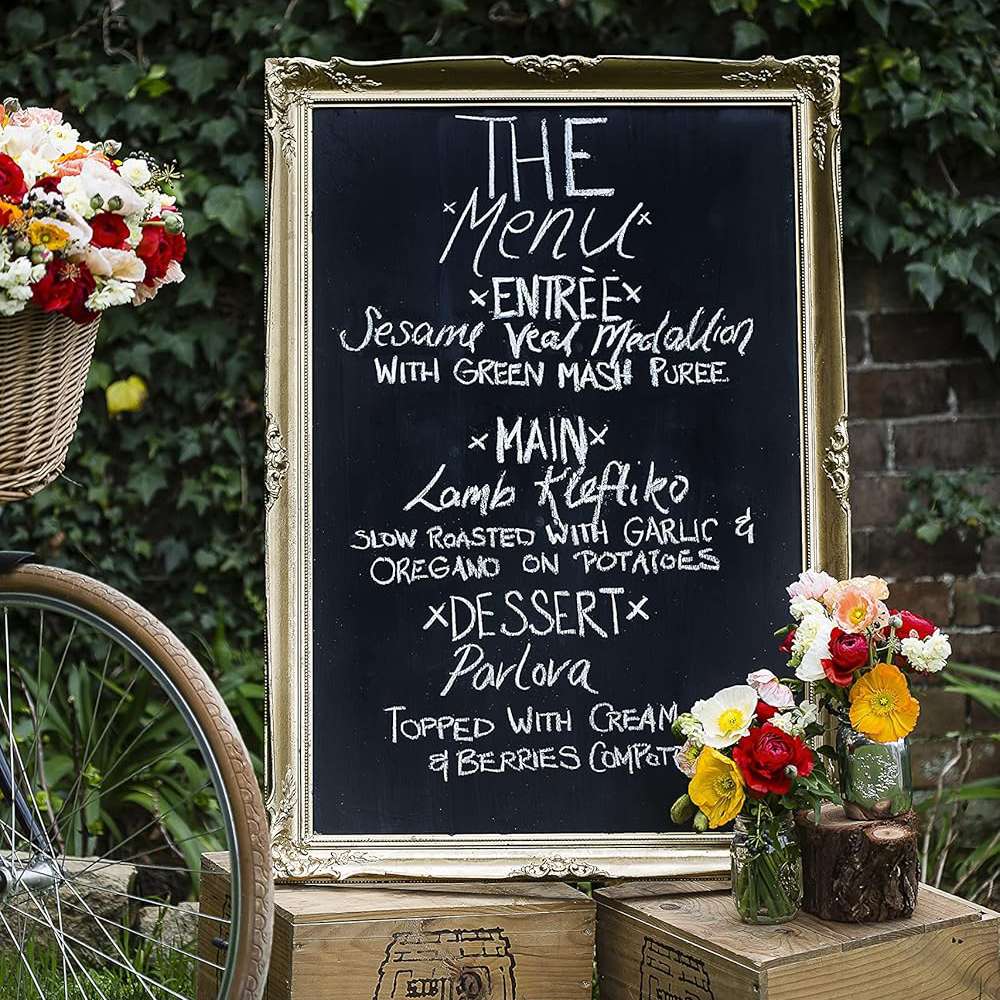 THE
xMenux
xENTRÈEx
Sesame Veal Medallion
WITH GREEN MASH PUREE
xMAINx
Lamb Kleftiko
SLOW ROASTED WITH GARLIC &
OREGANO ON POTATOES
xDESSERTx
Parlova
TOPPED WITH CREAM
& BERRIES COMPOT